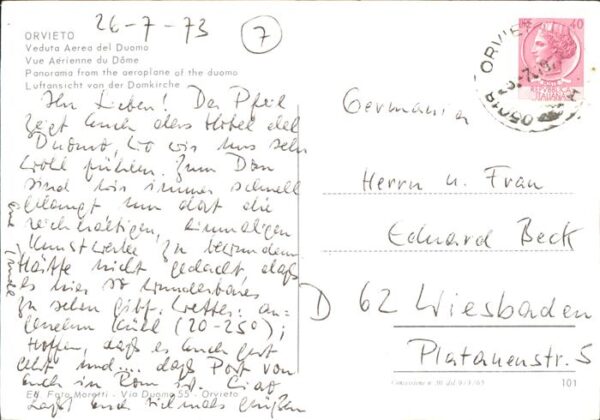 26-7-73 (7)
ORVIETO
Veduta Aerea del Duomo
Vue Aérienne du Dôme
Panorama from the aeroplane of the duomo
Luftansicht von der Domkirche
Ihr Lieben! Der Pfeil
zeigt Euch das Hotel del
Duomo, wo wir uns sehr
wohl fühlen. Zum Dom
sind wir immer schnell
gelangt um dort die
reichhaltigen, einmaligen
Kunstwerke zu bewundern
Hätte nicht gedacht, daß
es hier so wunderbares
zu sehen gibt. Wetter: an-
genehm kühl (20-25°);
Hoffen, daß es Euch gut
geht und.... daß Post von
Euch in Rom ist. Ciao
laßt Euch vielmals grüßen
Eure
Foto Moretti - Via Duomo 55 - Orvieto
40
ORVIETO
05018
Germania
Herrn u. Frau
Eduard Beck
D 62 Wiesbaden
Platanenstr. 5
101